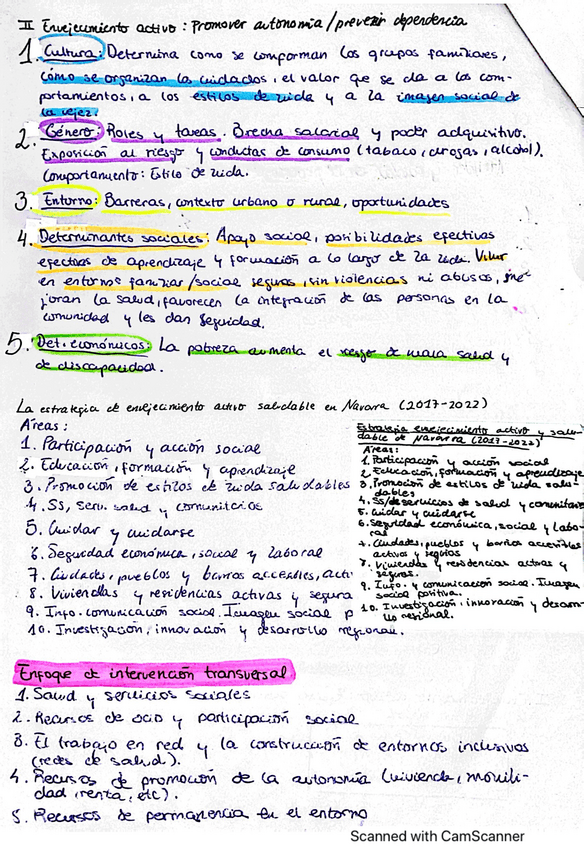 II Envejecimiento activo: Promover autonomía/prevenir dependencia
1. Cultura: Determina como se comforman los grupos familiares,
cómo se organizan los cuidados, el valor que se da a los com-
portamientos, a los estilos de vida y a la imagen social de
la vejez.
2. Género: Roles y tareas. Brecha salarial y poder adquisitivo.
Exposición al riesgo y conductas de consumo (tabaco, drogas, alcohol).
Comportamiento: Estilo de vida.
3. Entorno: Barreras, contexto urbano o rural, oportunidades
4. Determinantes sociales: Apoyo social, posibilidades efectivas
efectivas de aprendizaje y formación a lo largo de la vida. Vivir
en entornos familiar/social seguros, sin violencias ni abusos, me-
joran la salud, favorecen la integración de las personas en la
comunidad y les dan seguridad.
5. Det. económicos: La pobreza aumenta el riesgo de mala salud y
de discapacidad.
La estrategia de envejecimiento activo saludable en Navarra (2017-2022)
Áreas:
1. Participación y acción social
2. Educación, formación y aprendizaje
3. Promoción de estilos de vida saludables
4. SS, serv. salud y comunitarios
5. Cuidar y cuidarse
6. Seguridad económica, social y laboral
7. Ciudades, pueblos y barrios accesibles, acti
8. Viviendas y residencias activas y segura
9. Info. comunicación social. Imagen social p
10. Investigación, innovación y desarrollo regional.
Estrategia envejecimiento activo y salu-
dable de Navarra (2017-2022)
Áreas:
1. Participación y acción social
2. Educación, formación y aprendizaje
3. Promoción de estilos de vida salu-
dables
4. SS/de servicios de salud y comunitarios
5. Cuidar y cuidarse
6. Seguridad económica, social y labo-
ral
7. Ciudades, pueblos y barrios accesibles
activos y seguros
8. Viviendas y residencias activas y
seguras.
9. Info. y comunicación social. Imagen
social positiva.
10. Investigación, innovación y desarro-
llo regional.
Enfoque de intervención transversal
1. Salud y servicios sociales
2. Recursos de ocio y participación social
3. El trabajo en red y la construcción de entornos inclusivos
(redes de salud).
4. Recursos de promoción de la autonomía (vivienda, movili-
dad, renta, etc).
5. Recursos de permanencia en el entorno
Scanned with CamScanner